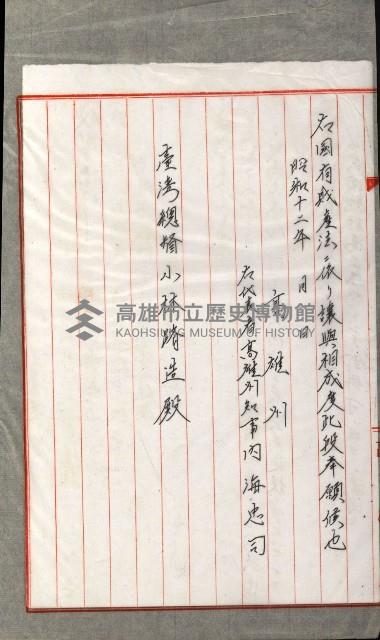 右國有財產法ニ依リ讓與相成度此段奉願候也
昭和十二年 月 日
高雄州
右代表者高雄州知事內海忠司
臺灣總督小林躋造殿
高雄市立歷史博物館
KAOHSIUNG MUSEUM OF HISTORY